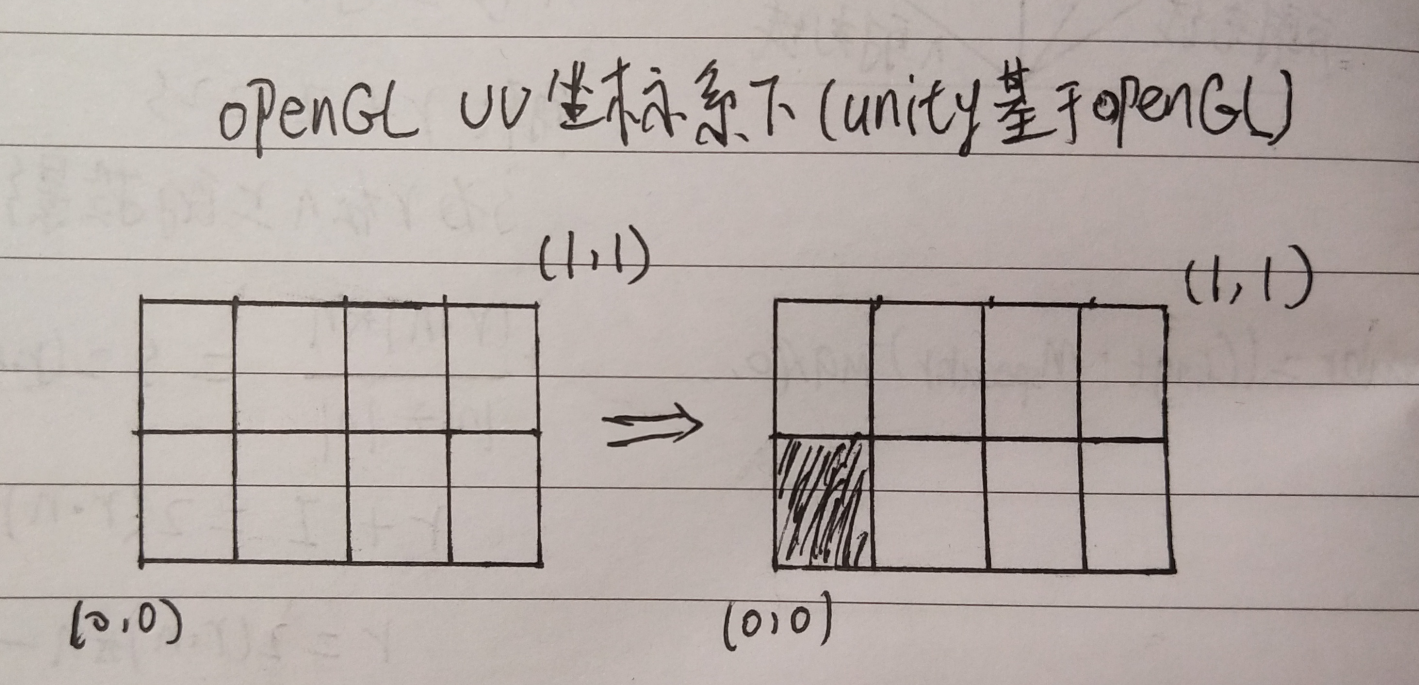 openGL UV坐标系下(unity基于openGL)
(1,1)
(1,1)
(0,0)
(0,0)